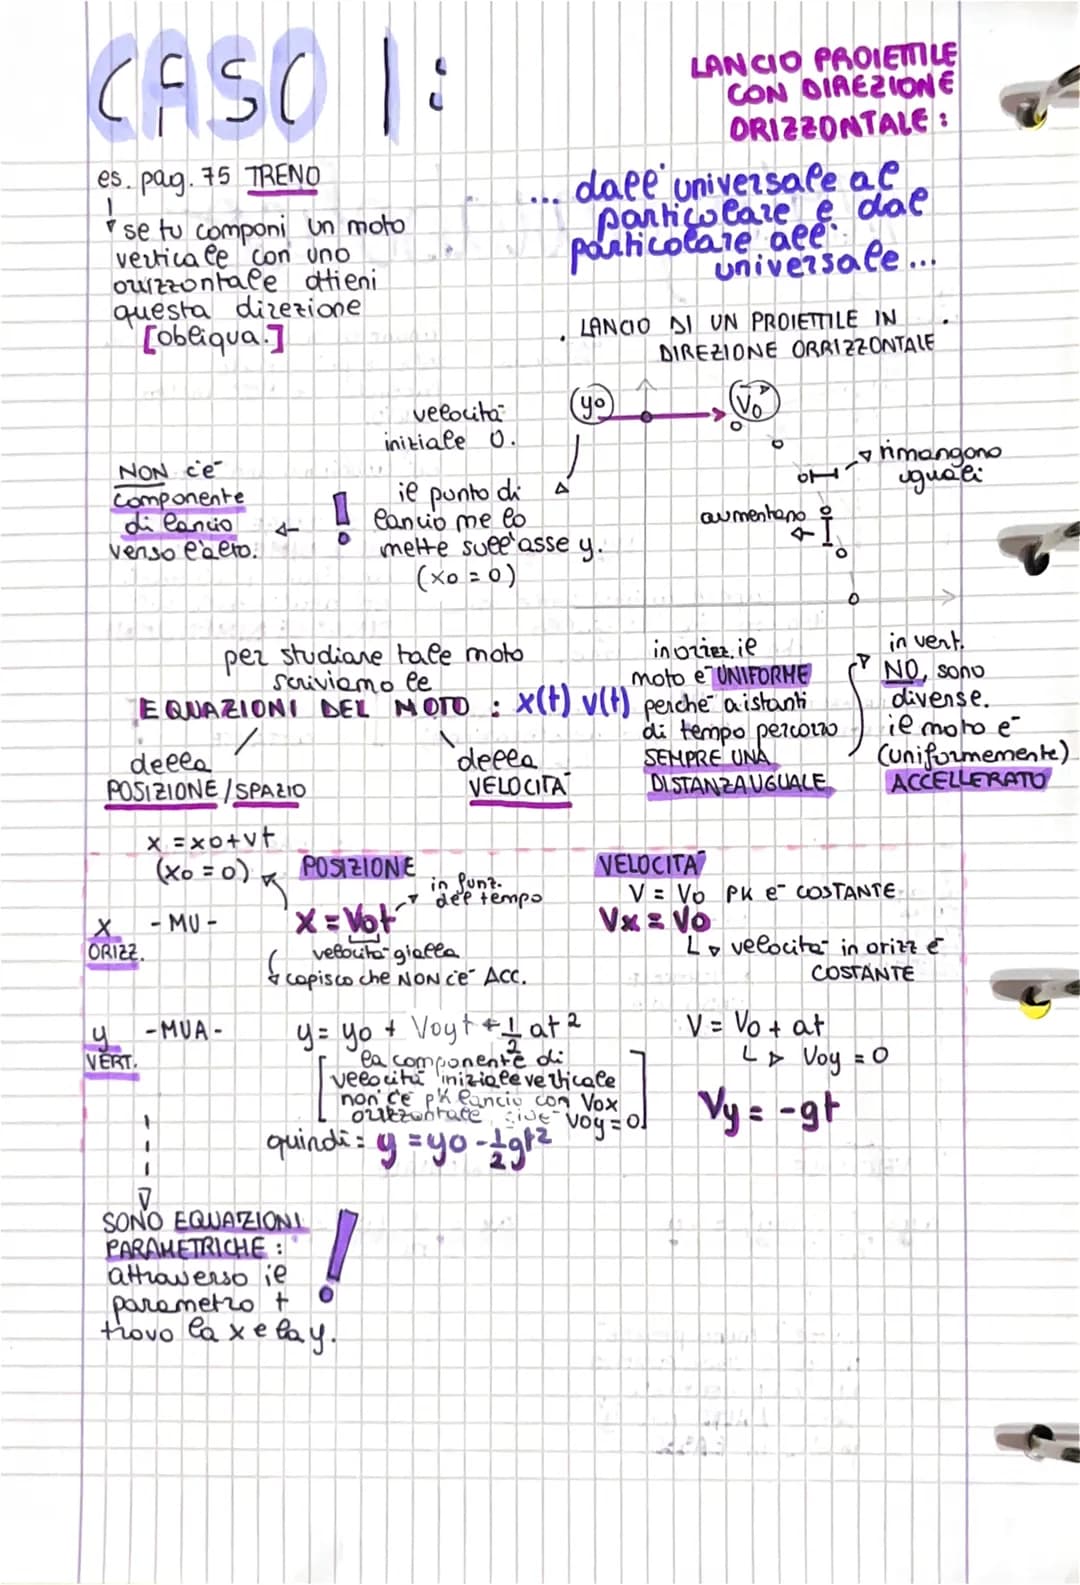 CASO 1:
LANCIO PROIETTILE
CON DIREZIONE
ORIZZONTALE:
es. pag. 75 TRENO
se tu componi un moto
verticale con uno
orizzontale ottieni
questa direzione
[obliqua.]
... dall'universale al
particolare e dal
particolare all'
universale...
. LANCIO DI UN PROIETTILE IN .
DIREZIONE ORRIZZONTALE
yo
Vo
velocità
iniziale 0.
il punto di
lancio me lo
mette sull'asse y.
(xo = 0)
NON c'è
componente
di lancio
verso l'alto.
!
rimangono
uguali
aumentano
per studiare tale moto
scriviamo le
EQUAZIONI DEL MOTO : x(t) v(t)
della
POSIZIONE/SPAZIO
della
VELOCITÀ
in orizz. il
moto è UNIFORME
perché a istanti
di tempo percorro
SEMPRE UNA
DISTANZA UGUALE
in vert.
NO, sono
diverse.
il moto è
(uniformemente)
ACCELLERATO
x = xo + vt
(xo = 0)
POSIZIONE
in funz.
del tempo
x - MU -
ORIZZ.
x = Vot
velocità gialla
capisco che NON c'è ACC.
VELOCITÀ
V = Vo PK è COSTANTE
Vx = Vo
velocità in orizz è
COSTANTE
y - MUA -
VERT.
y = yo + Voyt + 1/2 at²
[la componente di
velocità iniziale verticale
non c'è pk lancio con Vox
orizzontale Voy = 0]
quindi: y = yo - 1/2 gt²
V = Vo + at
Voy = 0
Vy = -gt
SONO EQUAZIONI
PARAMETRICHE :
attraverso il
parametro t
trovo la x e la y.
!